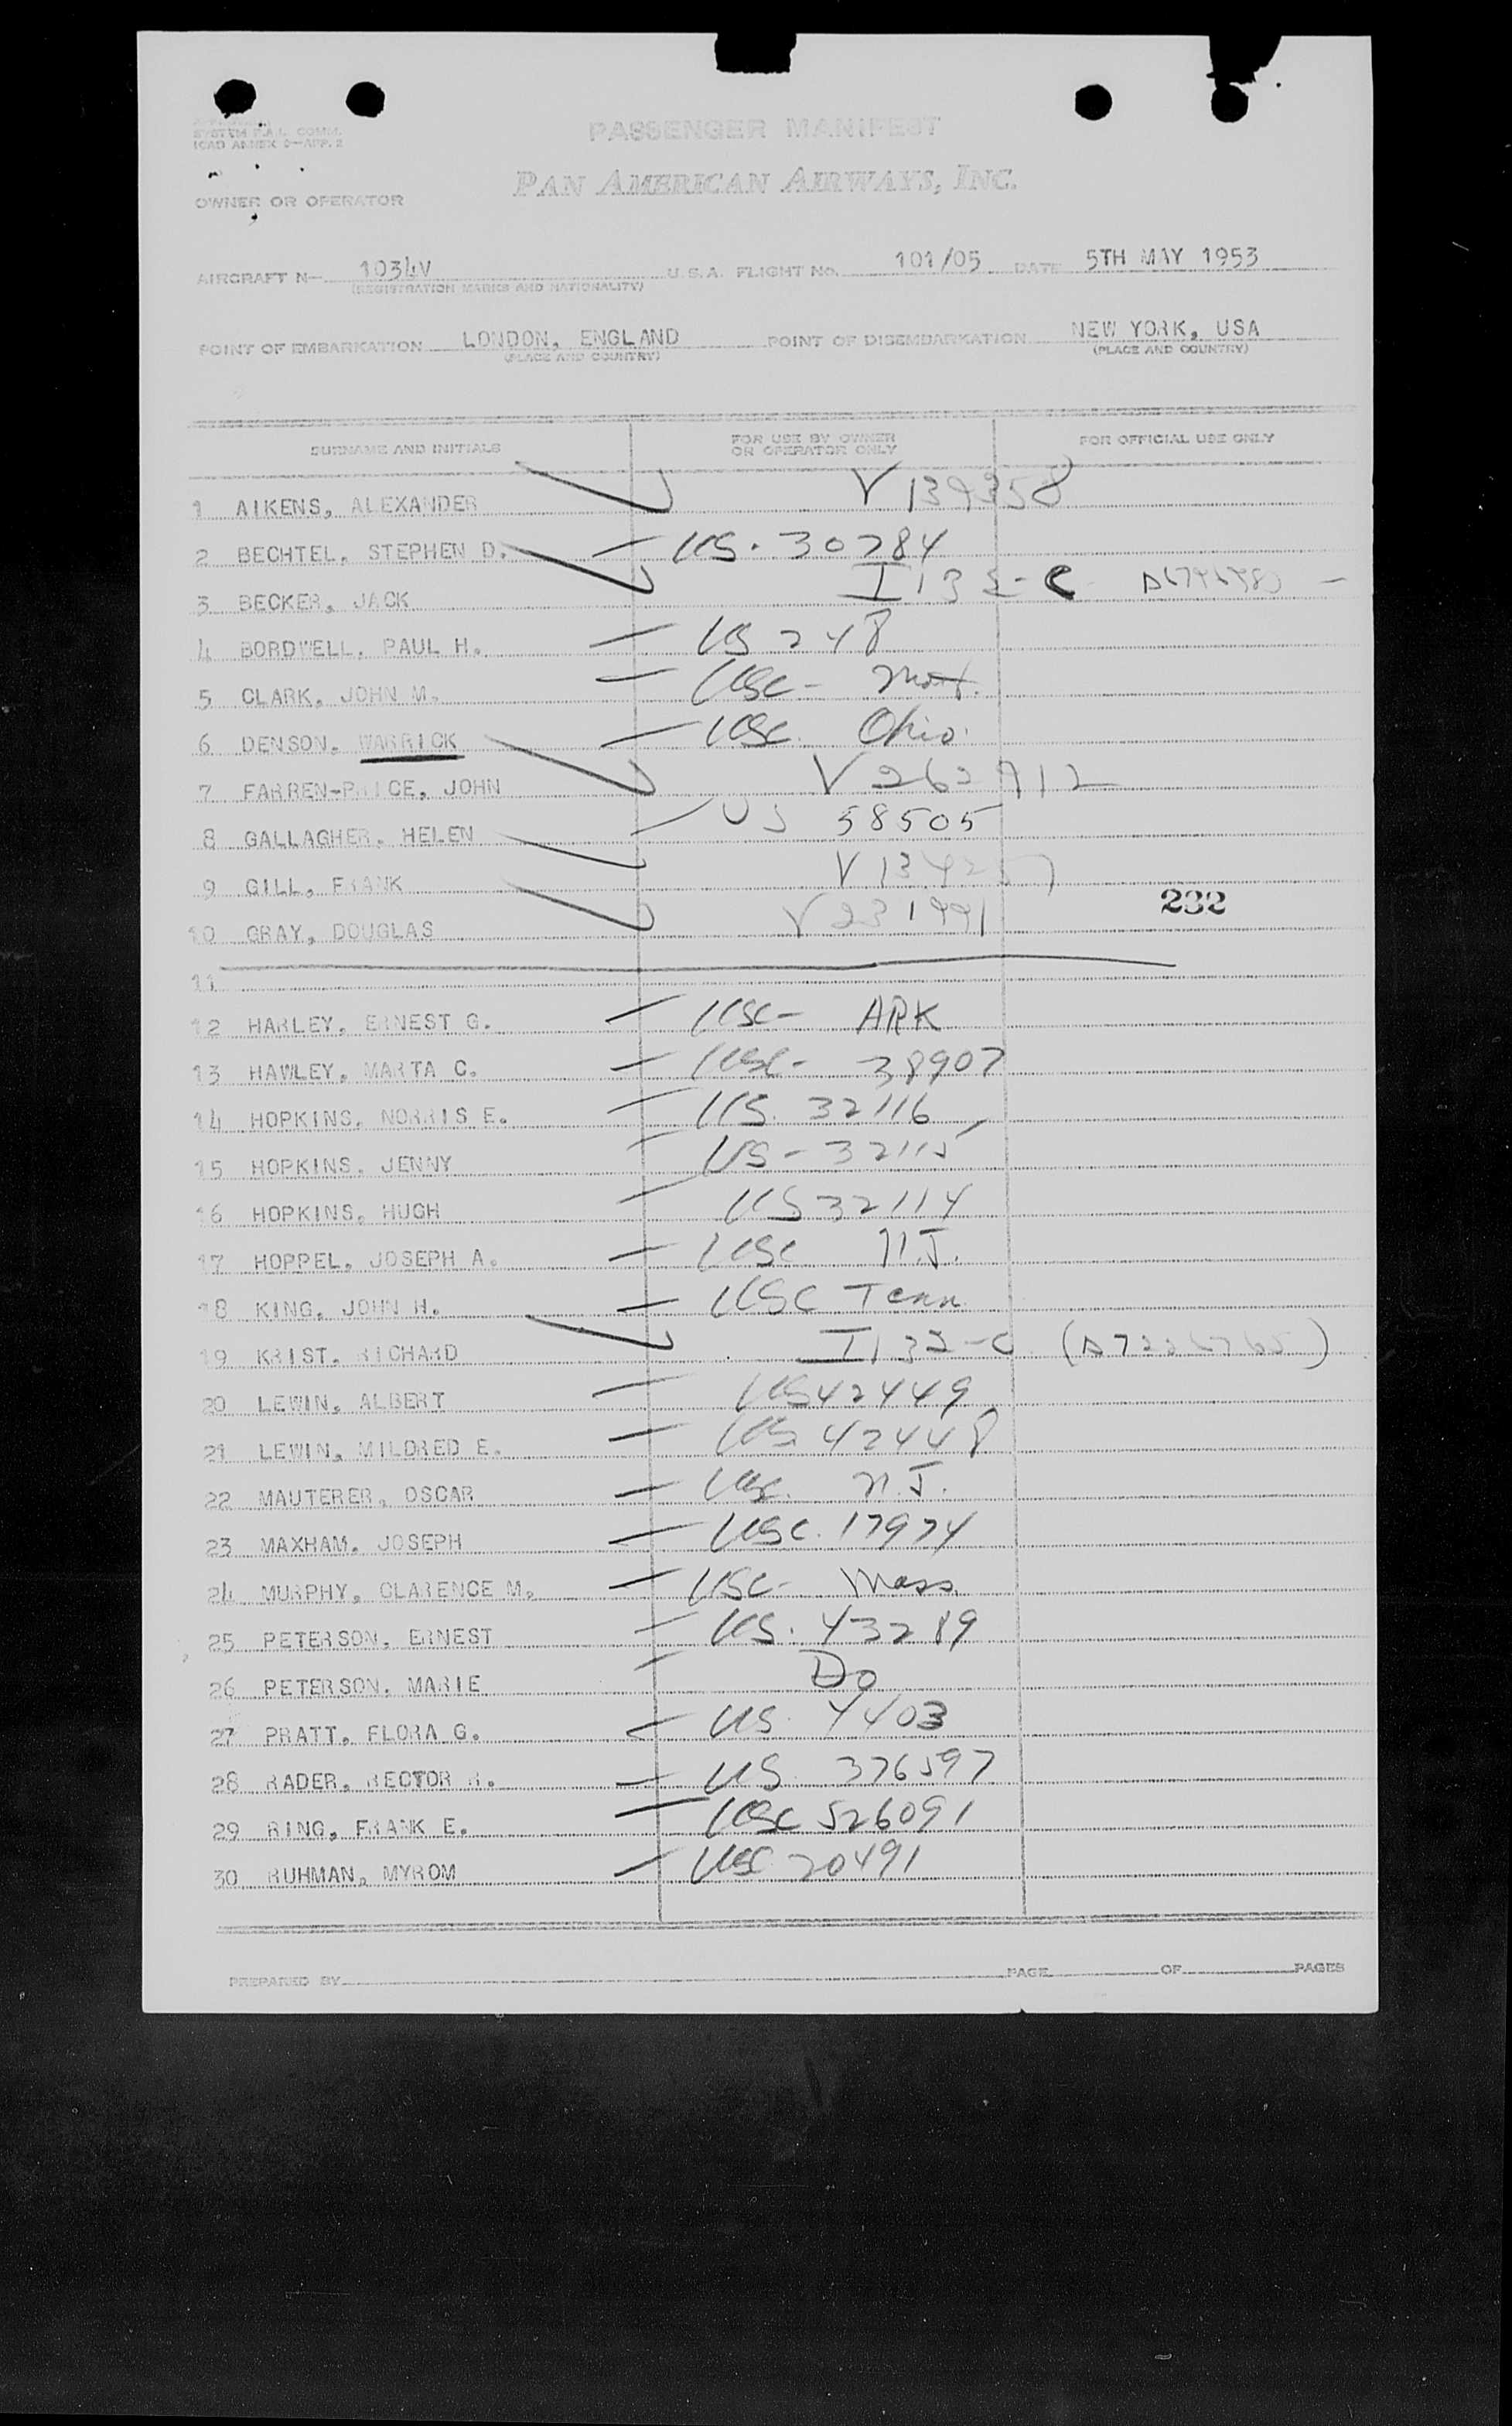 SYSTEM P.A.L. COMM.
ICAO ANNEX 9—APP. 2
PASSENGER MANIFEST
PAN AMERICAN AIRWAYS, INC.
OWNER OR OPERATOR
AIRCRAFT N— 1034V U.S.A. FLIGHT NO. 101/05 DATE 5TH MAY 1953
(REGISTRATION MARKS AND NATIONALITY)
POINT OF EMBARKATION LONDON, ENGLAND POINT OF DISEMBARKATION NEW YORK, USA
(PLACE AND COUNTRY) (PLACE AND COUNTRY)
SURNAME AND INITIALS FOR USE BY OWNER OR OPERATOR ONLY FOR OFFICIAL USE ONLY
1 AIKENS, ALEXANDER V 139358
2 BECHTEL, STEPHEN D. US. 30784
3 BECKER, JACK
4 BORDWELL, PAUL H. US 248
5 CLARK, JOHN M. USC-
6 DENSON, WARRICK USC. Ohio.
7 FARREN-PRICE, JOHN V 262912
8 GALLAGHER, HELEN US 58505
9 GILL, FRANK
10 GRAY, DOUGLAS V 231991
232
11
12 HARLEY, ERNEST G. USC- ARK
13 HAWLEY, MARTA C. USC- 38907
14 HOPKINS, NORRIS E. US. 32116
15 HOPKINS, JENNY US- 32115
16 HOPKINS, HUGH US 32114
17 HOPPEL, JOSEPH A. USC N.J.
18 KING, JOHN H. USC Tenn
19 KRIST, RICHARD I 132-C
20 LEWIN, ALBERT US 42449
21 LEWIN, MILDRED E. US 42448
22 MAUTERER, OSCAR USC. N.J.
23 MAXHAM, JOSEPH USC. 17974
24 MURPHY, CLARENCE M. USC- Mass.
25 PETERSON, ERNEST US. 43289
26 PETERSON, MARIE Do
27 PRATT, FLORA G. US. 4403
28 RADER, RECTOR R. US 376597
29 RING, FRANK E. USC 526091
30 RUHMAN, MYROM USC 20491
PREPARED BY PAGE OF PAGES